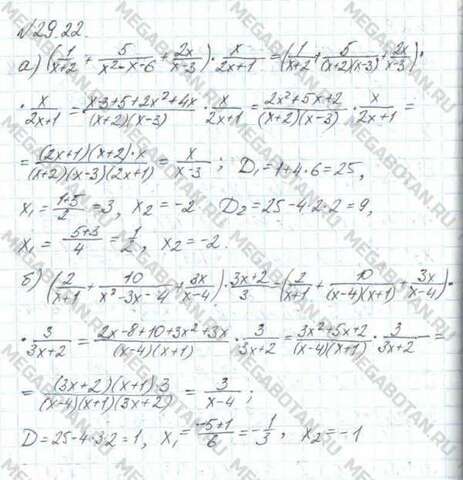 №29.22.
а) (1/(x+2) + 5/(x²-x-6) + 2x/(x-3)) · x/(2x+1) = (1/(x+2) + 5/((x+2)(x-3)) + 2x/(x-3)) ·
· x/(2x+1) = (x-3+5+2x²+4x)/((x+2)(x-3)) · x/(2x+1) = (2x²+5x+2)/((x+2)(x-3)) · x/(2x+1) =
= ((2x+1)(x+2)·x)/((x+2)(x-3)(2x+1)) = x/(x-3) ; D₁=1+4·6=25,
x₁ = (1+5)/2 = 3, x₂ = -2 D₂=25-4·2·2=9,
x₁ = (-5+3)/4 = 1/2, x₂ = -2.
б) (2/(x+1) + 10/(x²-3x-4) + 3x/(x-4)) · (3x+2)/3 = (2/(x+1) + 10/((x-4)(x+1)) + 3x/(x-4)) ·
· 3/(3x+2) = (2x-8+10+3x²+3x)/((x-4)(x+1)) · 3/(3x+2) = (3x²+5x+2)/((x-4)(x+1)) · 3/(3x+2) =
= ((3x+2)(x+1)·3)/((x-4)(x+1)(3x+2)) = 3/(x-4) ;
D=25-4·3·2=1, x₁ = (-5+1)/6 = -1/3, x₂ = -1
MEGABOTAN.RU